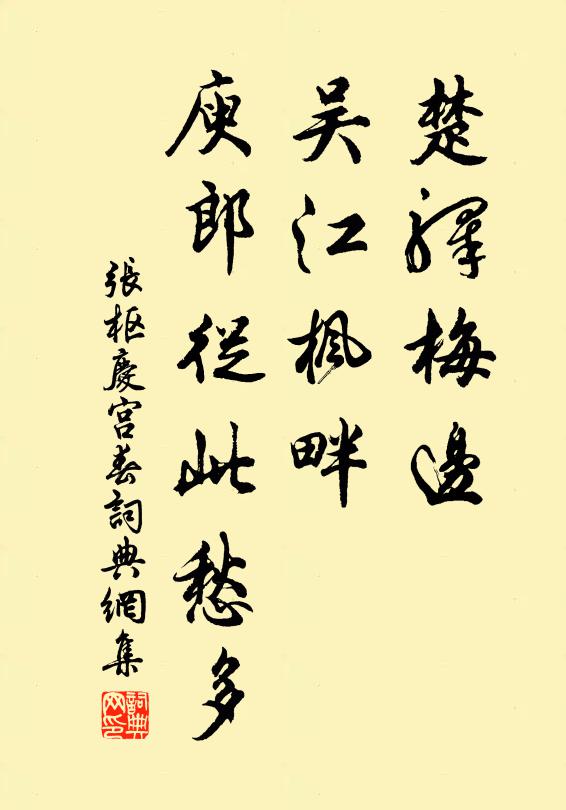 楚驛梅邊
吴江楓畔
庾郎從此愁多
張樞慶宮春詞典網集
詞典網印